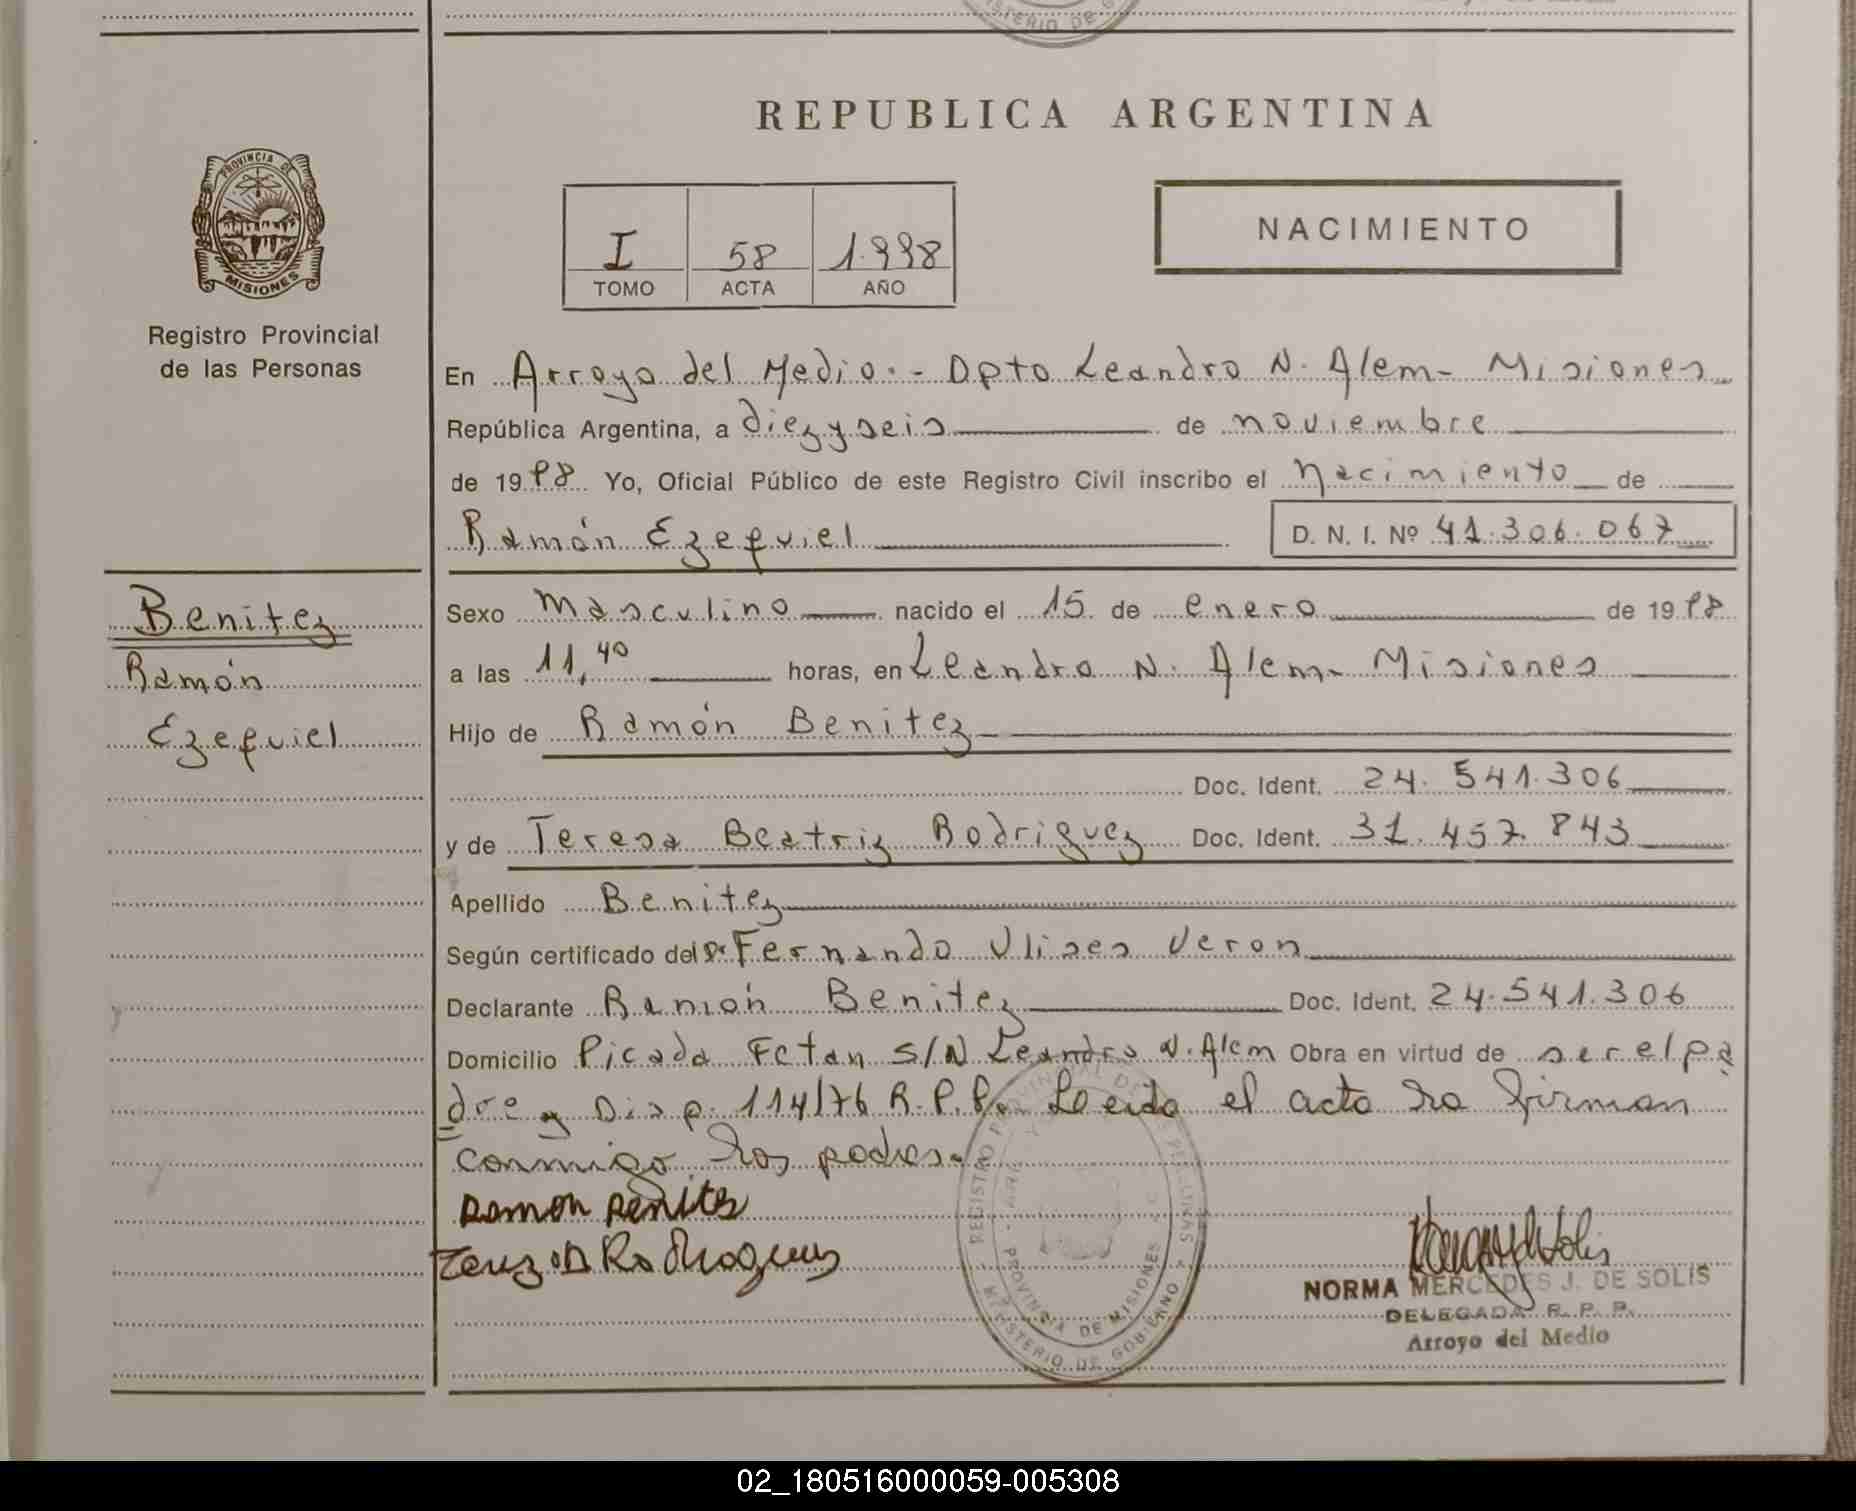 MINISTERIO DE G
REPUBLICA ARGENTINA
PROVINCIA DE
MISIONES
Registro Provincial
de las Personas
I 58 1.998
TOMO ACTA AÑO
NACIMIENTO
En Arroyo del Medio.- Dpto Leandro N. Alem- Misiones
República Argentina, a diezyseis de noviembre
de 1998 Yo, Oficial Público de este Registro Civil inscribo el nacimiento de
Ramón Ezequiel D. N. I. Nº 41.306.067
Benitez
Ramón
Ezequiel
Sexo masculino nacido el 15 de enero de 1998
a las 11,40 horas, en Leandro N. Alem- Misiones
Hijo de Ramón Benitez
Doc. Ident. 24.541.306
y de Teresa Beatriz Rodriguez Doc. Ident. 31.457.843
Apellido Benitez
Según certificado del Dr Fernando Ulises Veron
Declarante Ramón Benitez Doc. Ident. 24.541.306
Domicilio Picada S/N Leandro N. Alem Obra en virtud de ser el pa
dre y Disp. 114/76 R.P.P. Leida el acta la firman
conmigo los padres.
Ramon Benites
Rodrigues
REGISTRO PROVINCIAL DE LAS PERSONAS
PROVINCIA DE MISIONES
MINISTERIO DE GOBIERNO
NORMA MERCEDES J. DE SOLIS
DELEGADA R. P. P.
Arroyo del Medio
02_180516000059-005308